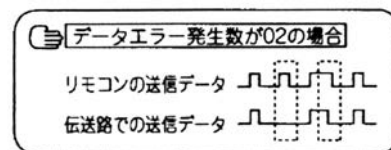 データエラー発生数が02の場合
リモコンの送信データ
伝送路での送信データ